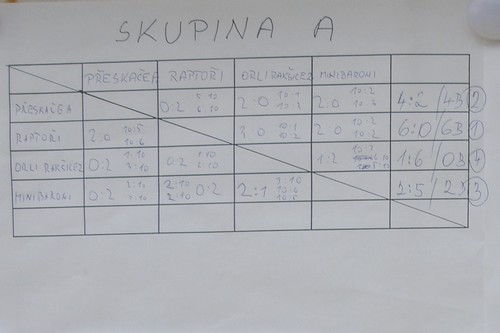 SKUPINA A
PŘESKAČEA RAPTOŘI ORLI RAKŠICE 2 MINIBARONI
PŘESKAČEA 0:2 5:10 6:10 2:0 10:1 10:3 2:0 10:2 10:6 4:2 / 4B 2
RAPTOŘI 2:0 10:5 10:6 2:0 10:1 10:2 2:0 10:2 10:2 6:0 / 6B 1
ORLI RAKŠICE 2 0:2 1:10 3:10 0:2 1:10 2:10 1:2 10:3 1:6 / 0B 4
MINIBARONI 0:2 2:10 2:10 0:2 2:1 3:10 10:6 10:5 2:5 / 2B 3